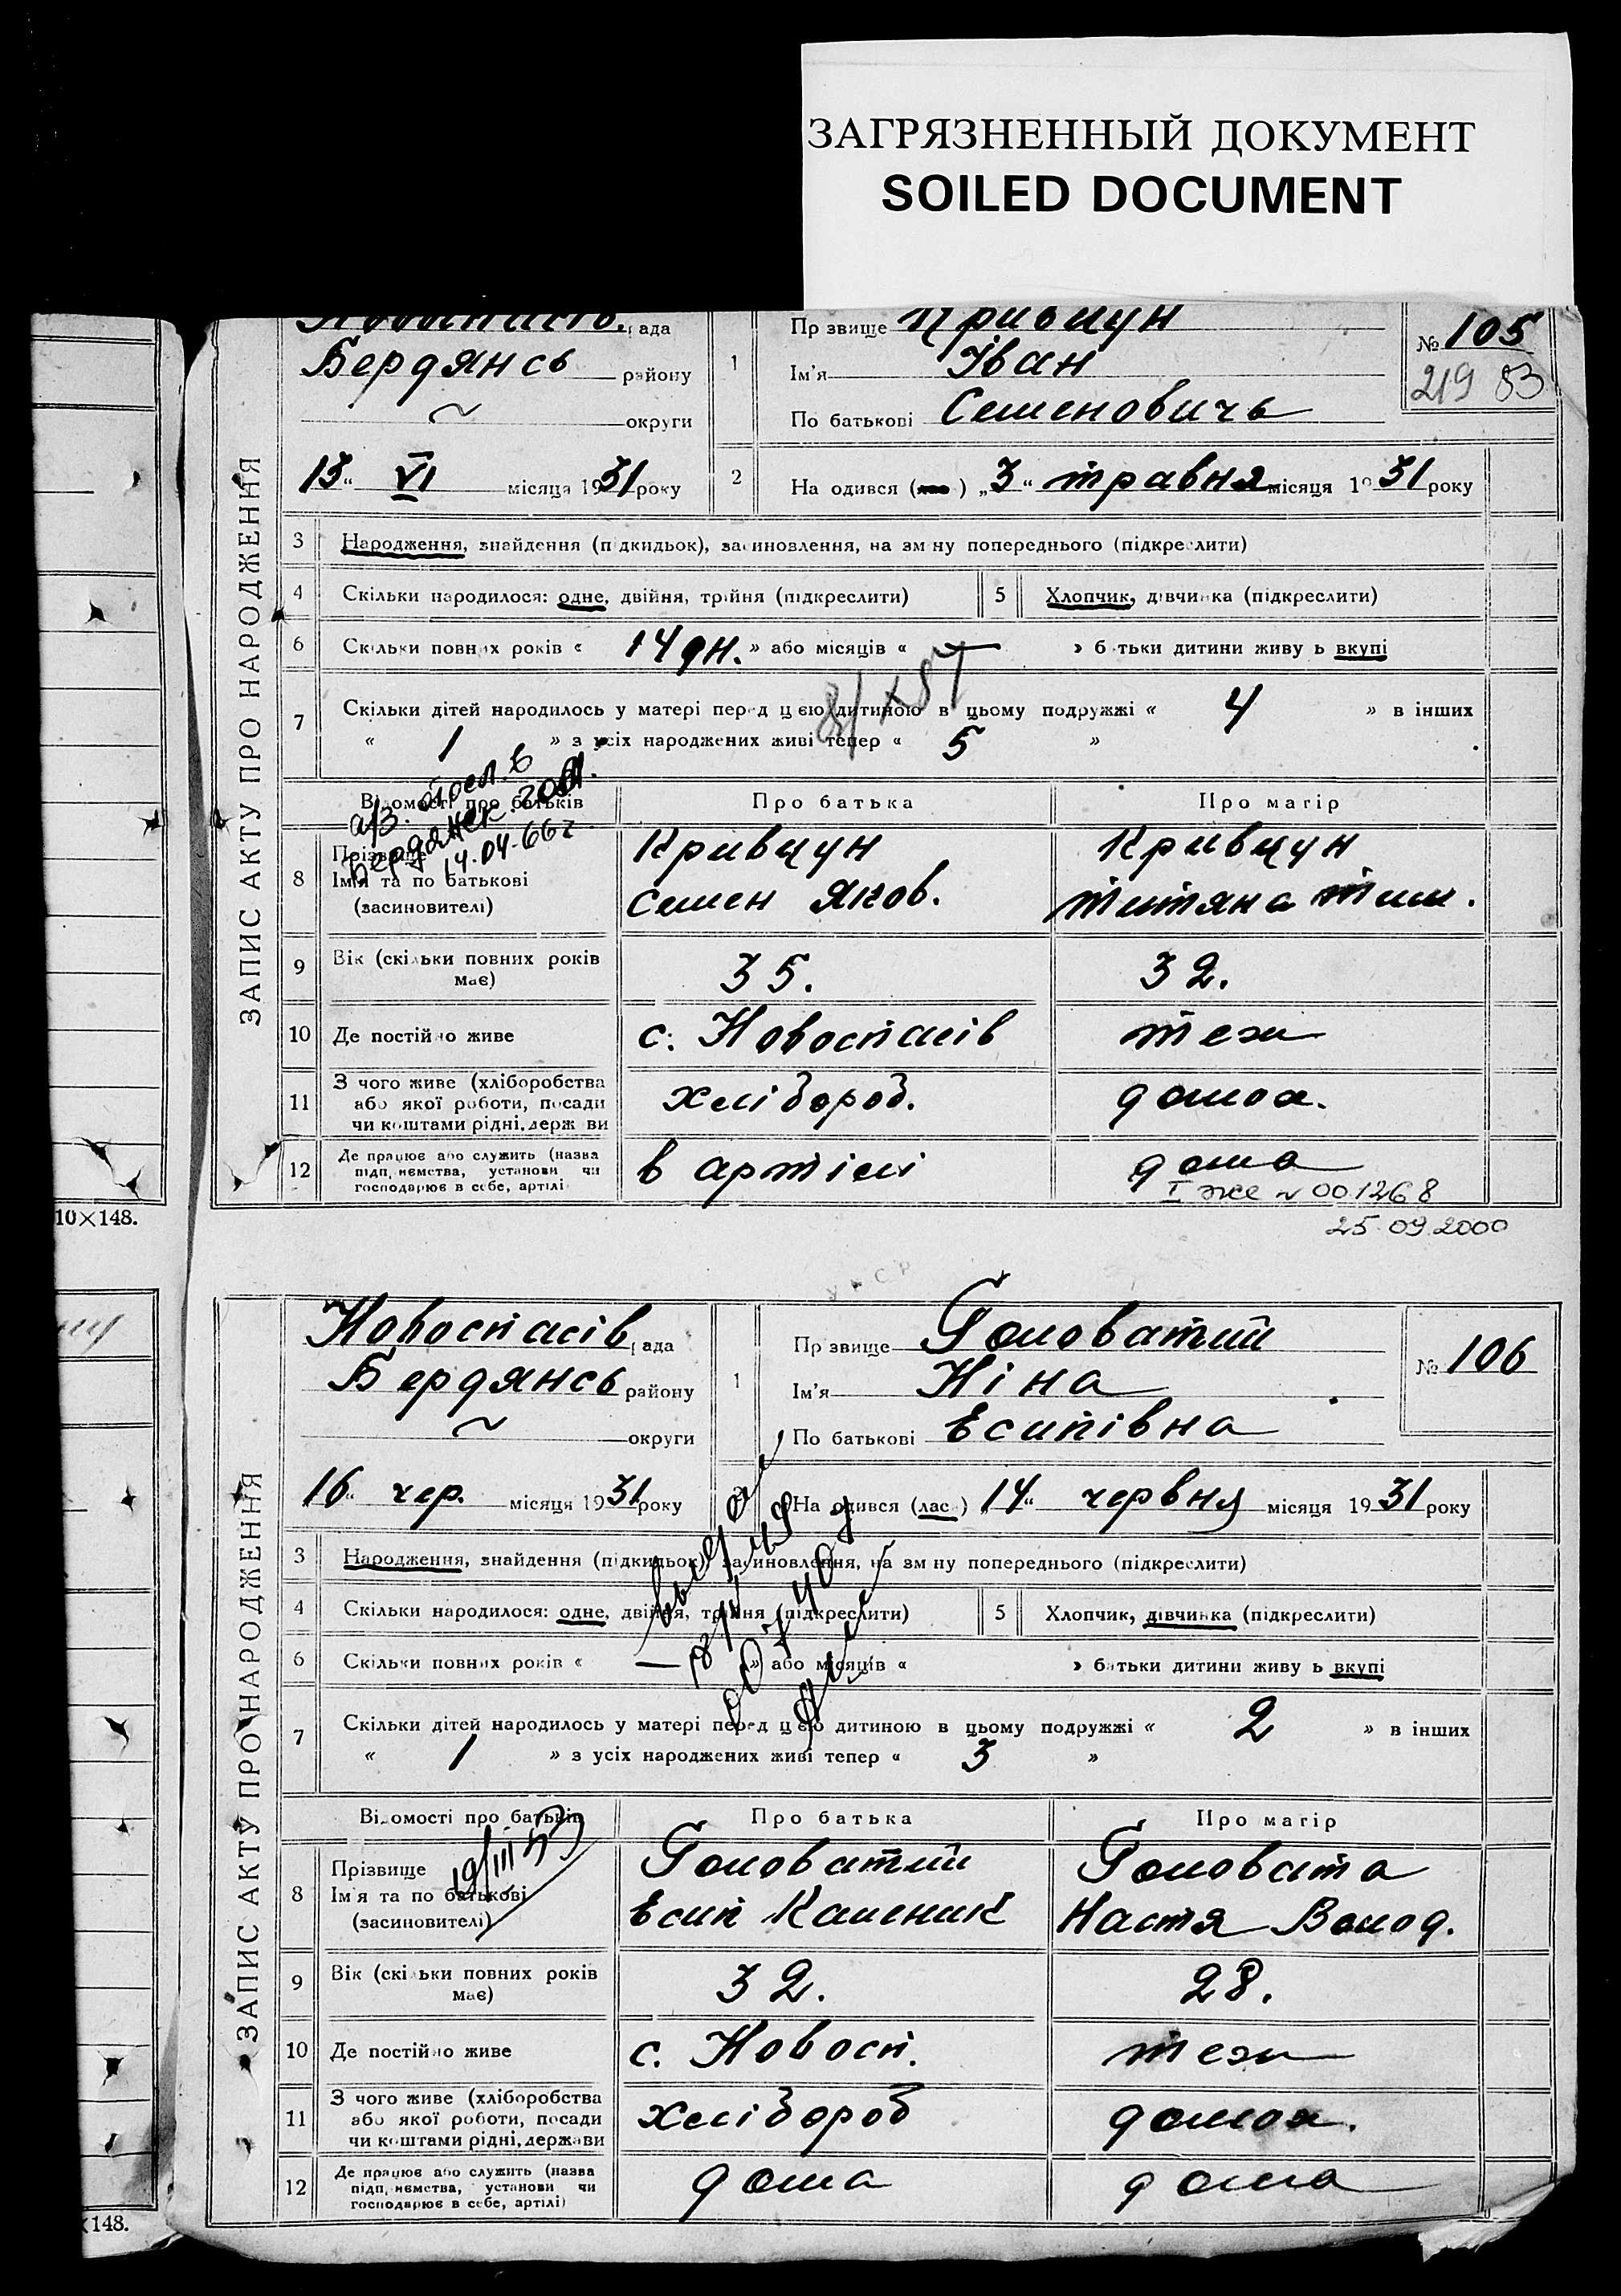 ЗАГРЯЗНЕННЫЙ ДОКУМЕНТ
SOILED DOCUMENT
ЗАПИС АКТУ ПРО НАРОДЖЕННЯ
рада
Бердянсь району
~ округи
13 VI місяця 1931 року
1 Прзвище Кривцун
Ім'я Іван
По батькові Семеновичь
№ 105
219 83
2 На одився ( ) „3“ травня місяця 1931 року
3 Народження, знайдення (підкидьок), засиновлення, на зміну попереднього (підкреслити)
4 Скільки народилося: одне, двійня, трійня (підкреслити)
5 Хлопчик, дівчинка (підкреслити)
6 Скільки повних років « 14 дн. » або місяців « — » батьки дитини живуь вкупі
7 Скільки дітей народилось у матері перед цією дитиною в цьому подружжі « 4 » в інших
« 1 » з усіх народжених живі тепер « 5 »
14.04.66г
Відомості про батьків Про батька Про матір
8 Прізвище
Ім'я та по батькові
(засиновителі)
Кривцун
Семен Яков.
Кривцун
Титяна Тим.
9 Вік (скільки повних років
має)
35. 32.
10 Де постійно живе с. Новоспасів теж
11 З чого живе (хліборобства
або якої роботи, посади
чи коштами рідні, держ ви
хлібороб. домох.
12 Де працює або служить (назва
підприємства, установи чи
господарює в себе, артілі
в артілі дома
I же № 001268
25.09.2000
10×148.
УРСР
ЗАПИС АКТУ ПРО НАРОДЖЕННЯ
Новоспасів рада
Бердянсь району
~ округи
16 чер. місяця 1931 року
1 Прзвище Головатий
Ім'я Ніна
По батькові Есипівна
№ 106
На одився (лась) 14 червня місяця 1931 року
3 Народження, знайдення (підкидьок), засиновлення, на зміну попереднього (підкреслити)
4 Скільки народилося: одне, двійня, трійня (підкреслити)
5 Хлопчик, дівчинка (підкреслити)
6 Скільки повних років « — » або місяців « » батьки дитини живуь вкупі
7 Скільки дітей народилось у матері перед цією дитиною в цьому подружжі « 2 » в інших
« 1 » з усіх народжених живі тепер « 3 »
19/III 53
Відомості про батьків Про батька Про матір
8 Прізвище
Ім'я та по батькові
(засиновителі)
Головатий
Есип Каленик
Головата
Настя Волод.
9 Вік (скільки повних років
має)
32. 28.
10 Де постійно живе с. Новосп. теж
11 З чого живе (хліборобства
або якої роботи, посади
чи коштами рідні, держави
хлібороб домох.
12 Де працює або служить (назва
підприємства, установи чи
господарює в себе, артілі)
дома дома
×148.